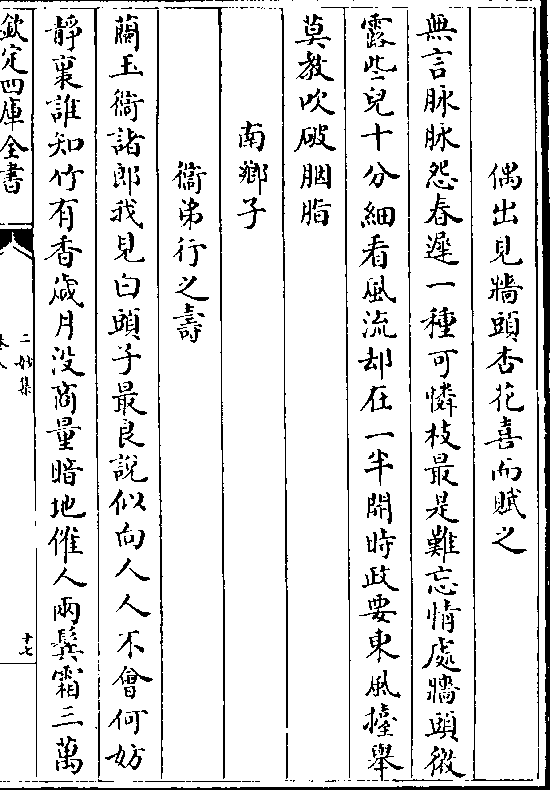 偶出見牆頭杏花喜而賦之
無言脉脉怨春遲一種可憐枝最是難忘情處牆頭微
露些兒十分細看風流却在一半開時政要東風擡舉
莫教吹破胭脂
南鄉子
衞弟行之壽
蘭玉衞諸郎我見白頭子最良說似向人人不會何妨
靜裏誰知竹有香歲月没商量暗地催人兩鬢霜三萬
欽定四庫全書
二妙集
卷八
十七